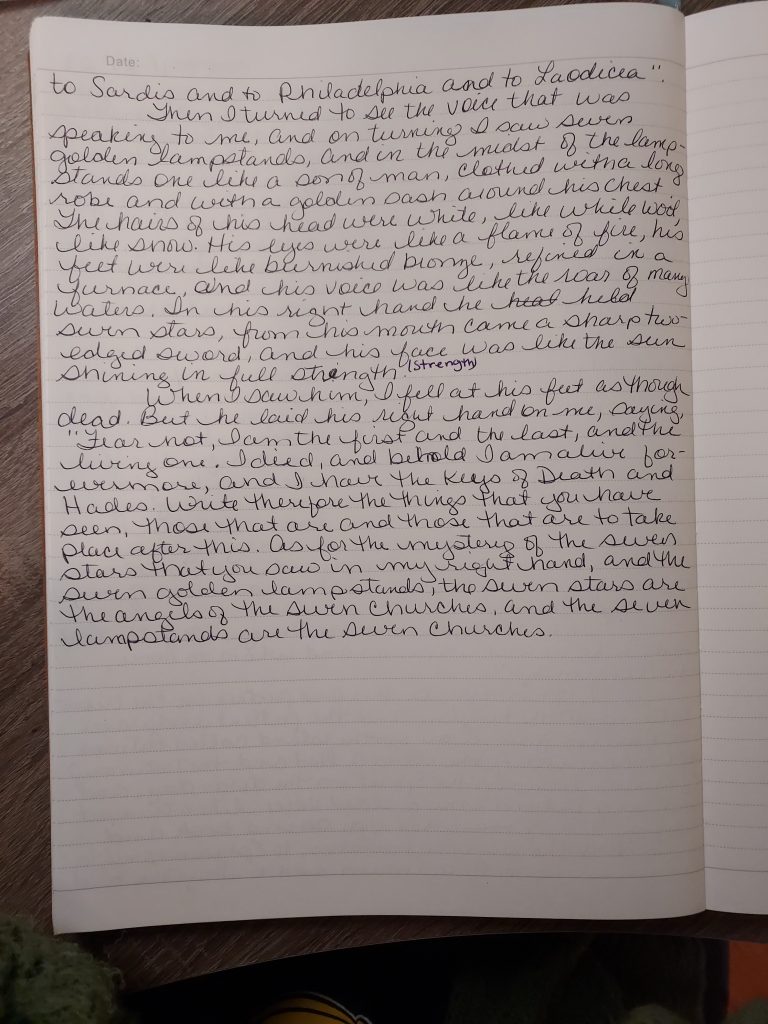 Date:
to Sardis and to Philadelphia and to Laodicea".
Then I turned to see the voice that was
speaking to me, and on turning I saw seven
golden lampstands, and in the midst of the lamp-
stands one like a son of man, clothed with a long
robe and with a golden sash around his chest.
The hairs of his head were white, like white wool,
like snow. His eyes were like a flame of fire, his
feet were like burnished bronze, refined in a
furnace, and his voice was like the roar of many
waters. In his right hand he head held
seven stars, from his mouth came a sharp two-
edged sword, and his face was like the sun
shining in full strength. (strength)
When I saw him, I fell at his feet as though
dead. But he laid his right hand on me, saying,
"Fear not, I am the first and the last, and the
living one. I died, and behold I am alive for-
evermore, and I have the keys of Death and
Hades. Write therefore the things that you have
seen, those that are and those that are to take
place after this. As for the mystery of the seven
stars that you saw in my right hand, and the
seven golden lampstands, the seven stars are
the angels of the seven churches, and the seven
lampstands are the seven churches.